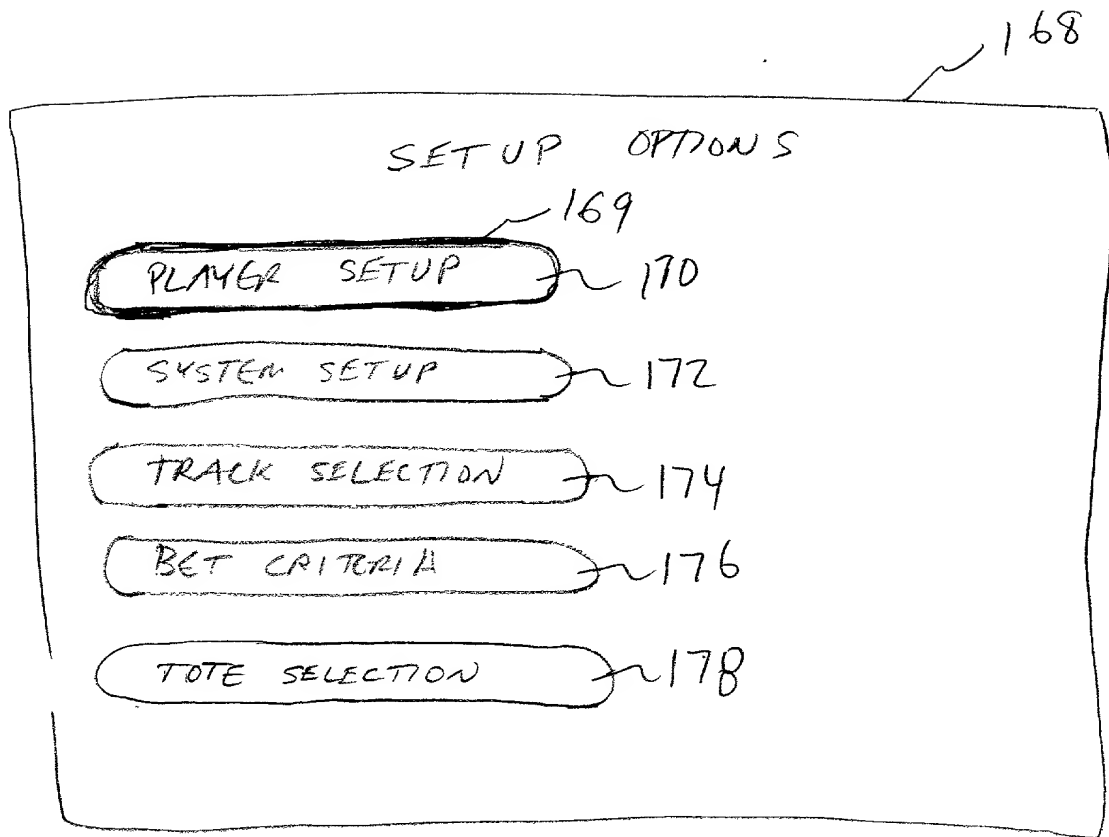 168
SETUP OPTIONS
169
PLAYER SETUP 170
SYSTEM SETUP 172
TRACK SELECTION 174
BET CRITERIA 176
TOTE SELECTION 178